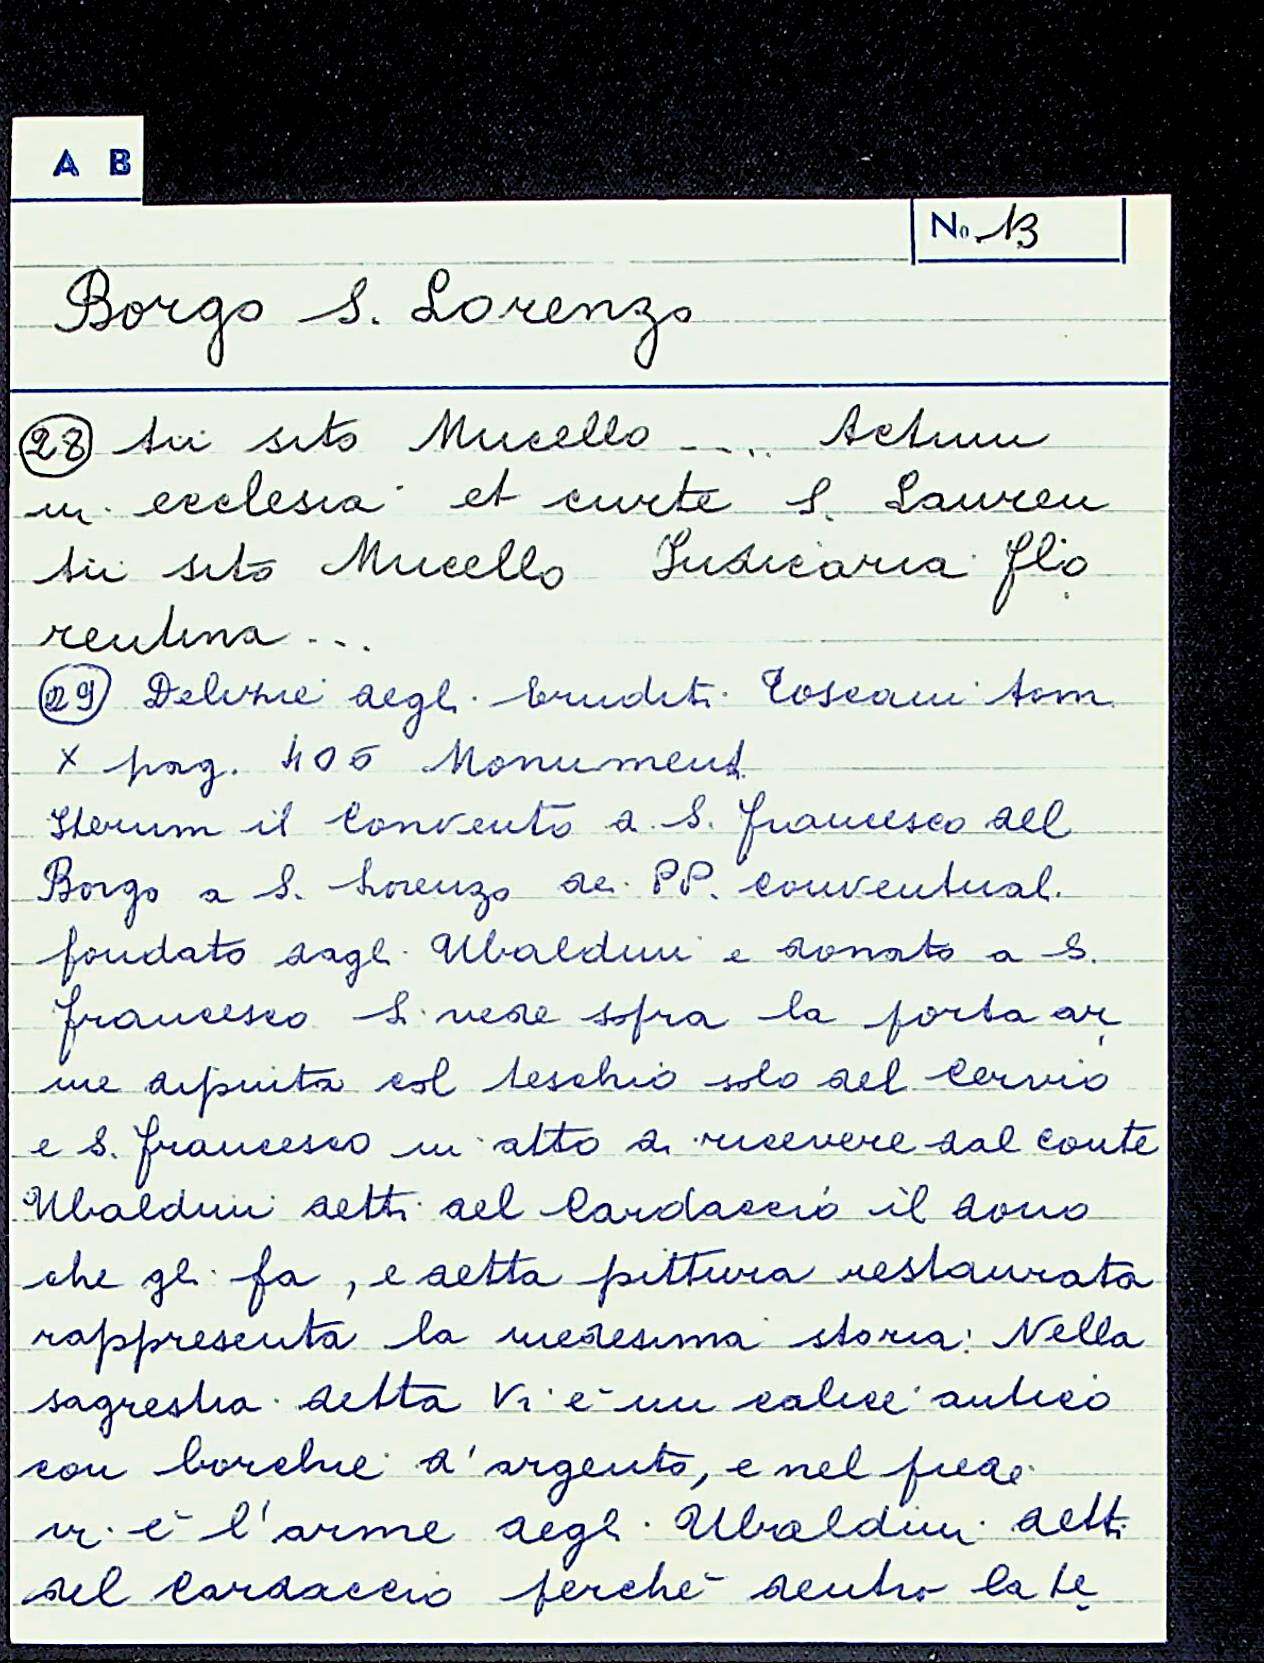 A B
No. 13
Borgo S. Lorenzo
28 tii sito Mucello .... Actum
in ecclesia et curte S. Lauren
tii sito Mucello Iudicaria flo
rentina ...
29 Delizie degli eruditi Toscani tom.
X pag. 405 Monument.
Iterum il Convento a S. Francesco del
Borgo a S. Lorenzo de PP. conventual.
fondato dagli Ubaldini e donato a S.
Francesco Si vede sopra la porta ar
me dipinta col teschio solo del Cervio
e S. Francesco in atto di ricevere dal conte
Ubaldini detti del Cardaccio il dono
che gli fa, e detta pittura restaurata
rappresenta la medesima storia: Nella
sagrestia detta Vi è un calice antico
con borchie d'argento, e nel piede
vi è l'arme degli Ubaldini detti
del Cardaccio perché dentro la te